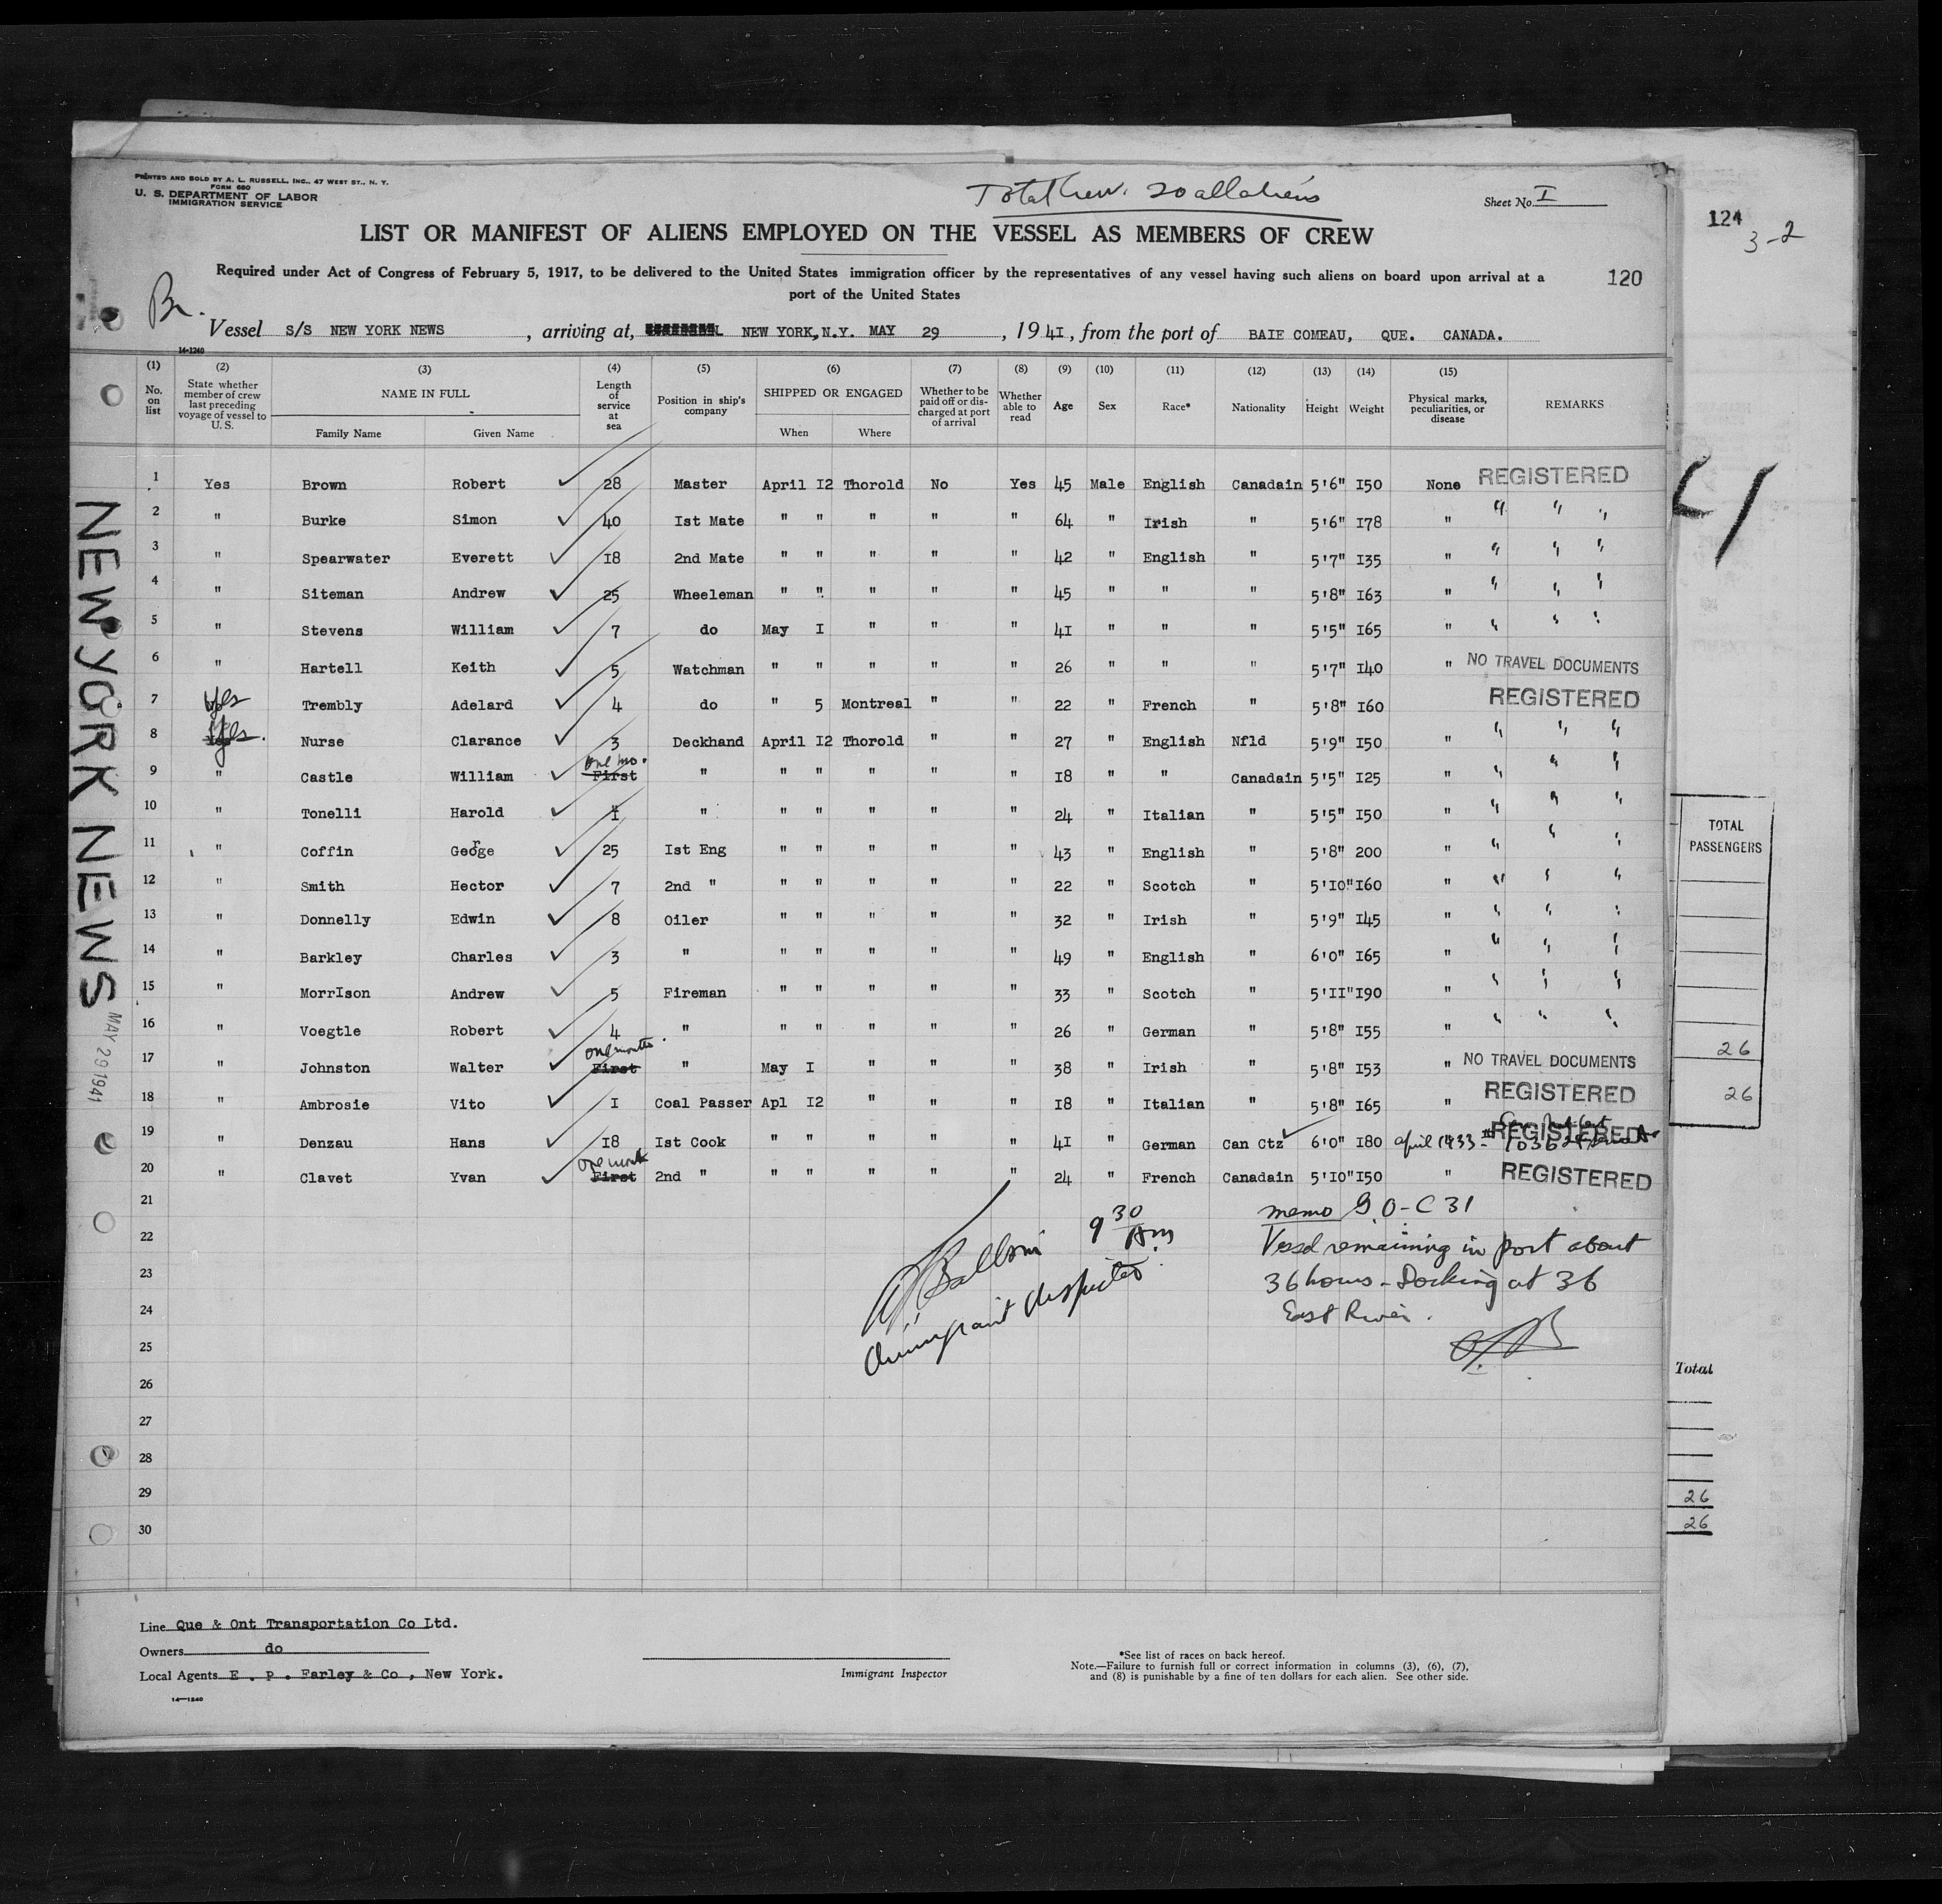 PRINTED AND SOLD BY A. L. RUSSELL, INC., 47 WEST ST., N. Y.
FORM 680
U. S. DEPARTMENT OF LABOR
IMMIGRATION SERVICE
Total Crew. 20 all aliens
Sheet No. I
124
3-2
LIST OR MANIFEST OF ALIENS EMPLOYED ON THE VESSEL AS MEMBERS OF CREW
Required under Act of Congress of February 5, 1917, to be delivered to the United States immigration officer by the representatives of any vessel having such aliens on board upon arrival at a
port of the United States
120
Br.
Vessel S/S NEW YORK NEWS, arriving at, NEW YORK, N.Y. MAY 29, 1941, from the port of BAIE COMEAU, QUE. CANADA.
14-1240
(1) (2) (3) (4) (5) (6) (7) (8) (9) (10) (11) (12) (13) (14) (15)
No. on list State whether member of crew last preceding voyage of vessel to U. S. NAME IN FULL Family Name Given Name Length of service at sea Position in ship's company SHIPPED OR ENGAGED When Where Whether to be paid off or discharged at port of arrival Whether able to read Age Sex Race* Nationality Height Weight Physical marks, peculiarities, or disease REMARKS
1 Yes Brown Robert 28 Master April I2 Thorold No Yes 45 Male English Canadain 5'6" I50 None REGISTERED
2 " Burke Simon 40 Ist Mate " " " " " 64 " Irish " 5'6" I78 " " " "
3 " Spearwater Everett I8 2nd Mate " " " " " 42 " English " 5'7" I35 " " " "
4 " Siteman Andrew 25 Wheeleman " " " " " 45 " " " 5'8" I63 " " " "
5 " Stevens William 7 do May I " " " 4I " " " 5'5" I65 " " " "
6 " Hartell Keith 5 Watchman " " " " " 26 " " " 5'7" I40 " NO TRAVEL DOCUMENTS
7 Yes Trembly Adelard 4 do " 5 Montreal " " 22 " French " 5'8" I60 REGISTERED
8 Yes. Nurse Clarance 3 Deckhand April I2 Thorold " " 27 " English Nfld 5'9" I50 " " " "
9 " Castle William First one mo. " " " " " " I8 " " Canadain 5'5" I25 " " " "
10 " Tonelli Harold I " " " " " " 24 " Italian " 5'5" I50 " " " "
11 " Coffin George 25 Ist Eng " " " " " 43 " English " 5'8" 200 " " "
12 " Smith Hector 7 2nd " " " " " " 22 " Scotch " 5'I0" I60 " " " "
13 " Donnelly Edwin 8 Oiler " " " " " 32 " Irish " 5'9" I45 " " " "
14 " Barkley Charles 3 " " " " " " 49 " English " 6'0" I65 " " " "
15 " MorrIson Andrew 5 Fireman " " " " " 33 " Scotch " 5'II" I90 " " " "
16 " Voegtle Robert 4 " " " " " " 26 " German " 5'8" I55 " " " "
17 " Johnston Walter First one month " May I " " " 38 " Irish " 5'8" I53 " NO TRAVEL DOCUMENTS
18 " Ambrosie Vito I Coal Passer Apl I2 " " " I8 " Italian " 5'8" I65 " REGISTERED
19 " Denzau Hans I8 Ist Cook " " " " " 4I " German Can Ctz 6'0" I80 april 1933 REGISTERED
20 " Clavet Yvan First one month 2nd " " " " " " 24 " French Canadain 5'I0" I50 " REGISTERED
21
22
23
24
25
26
27
28
29
30
9 30 Am
Immigrant Inspector
memo G.O-C 31
Vessel remaining in port about
36 hours - Docking at 36
East River.
NEW YORK NEWS
MAY 29 1941
TOTAL
PASSENGERS
26
26
Total
26
26
Line Que & Ont Transportation Co Ltd.
Owners do
Local Agents E . P . Farley & Co , New York.
14-1240
Immigrant Inspector
*See list of races on back hereof.
Note.—Failure to furnish full or correct information in columns (3), (6), (7),
and (8) is punishable by a fine of ten dollars for each alien. See other side.